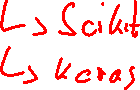 ↳ Scikit
↳ Keras